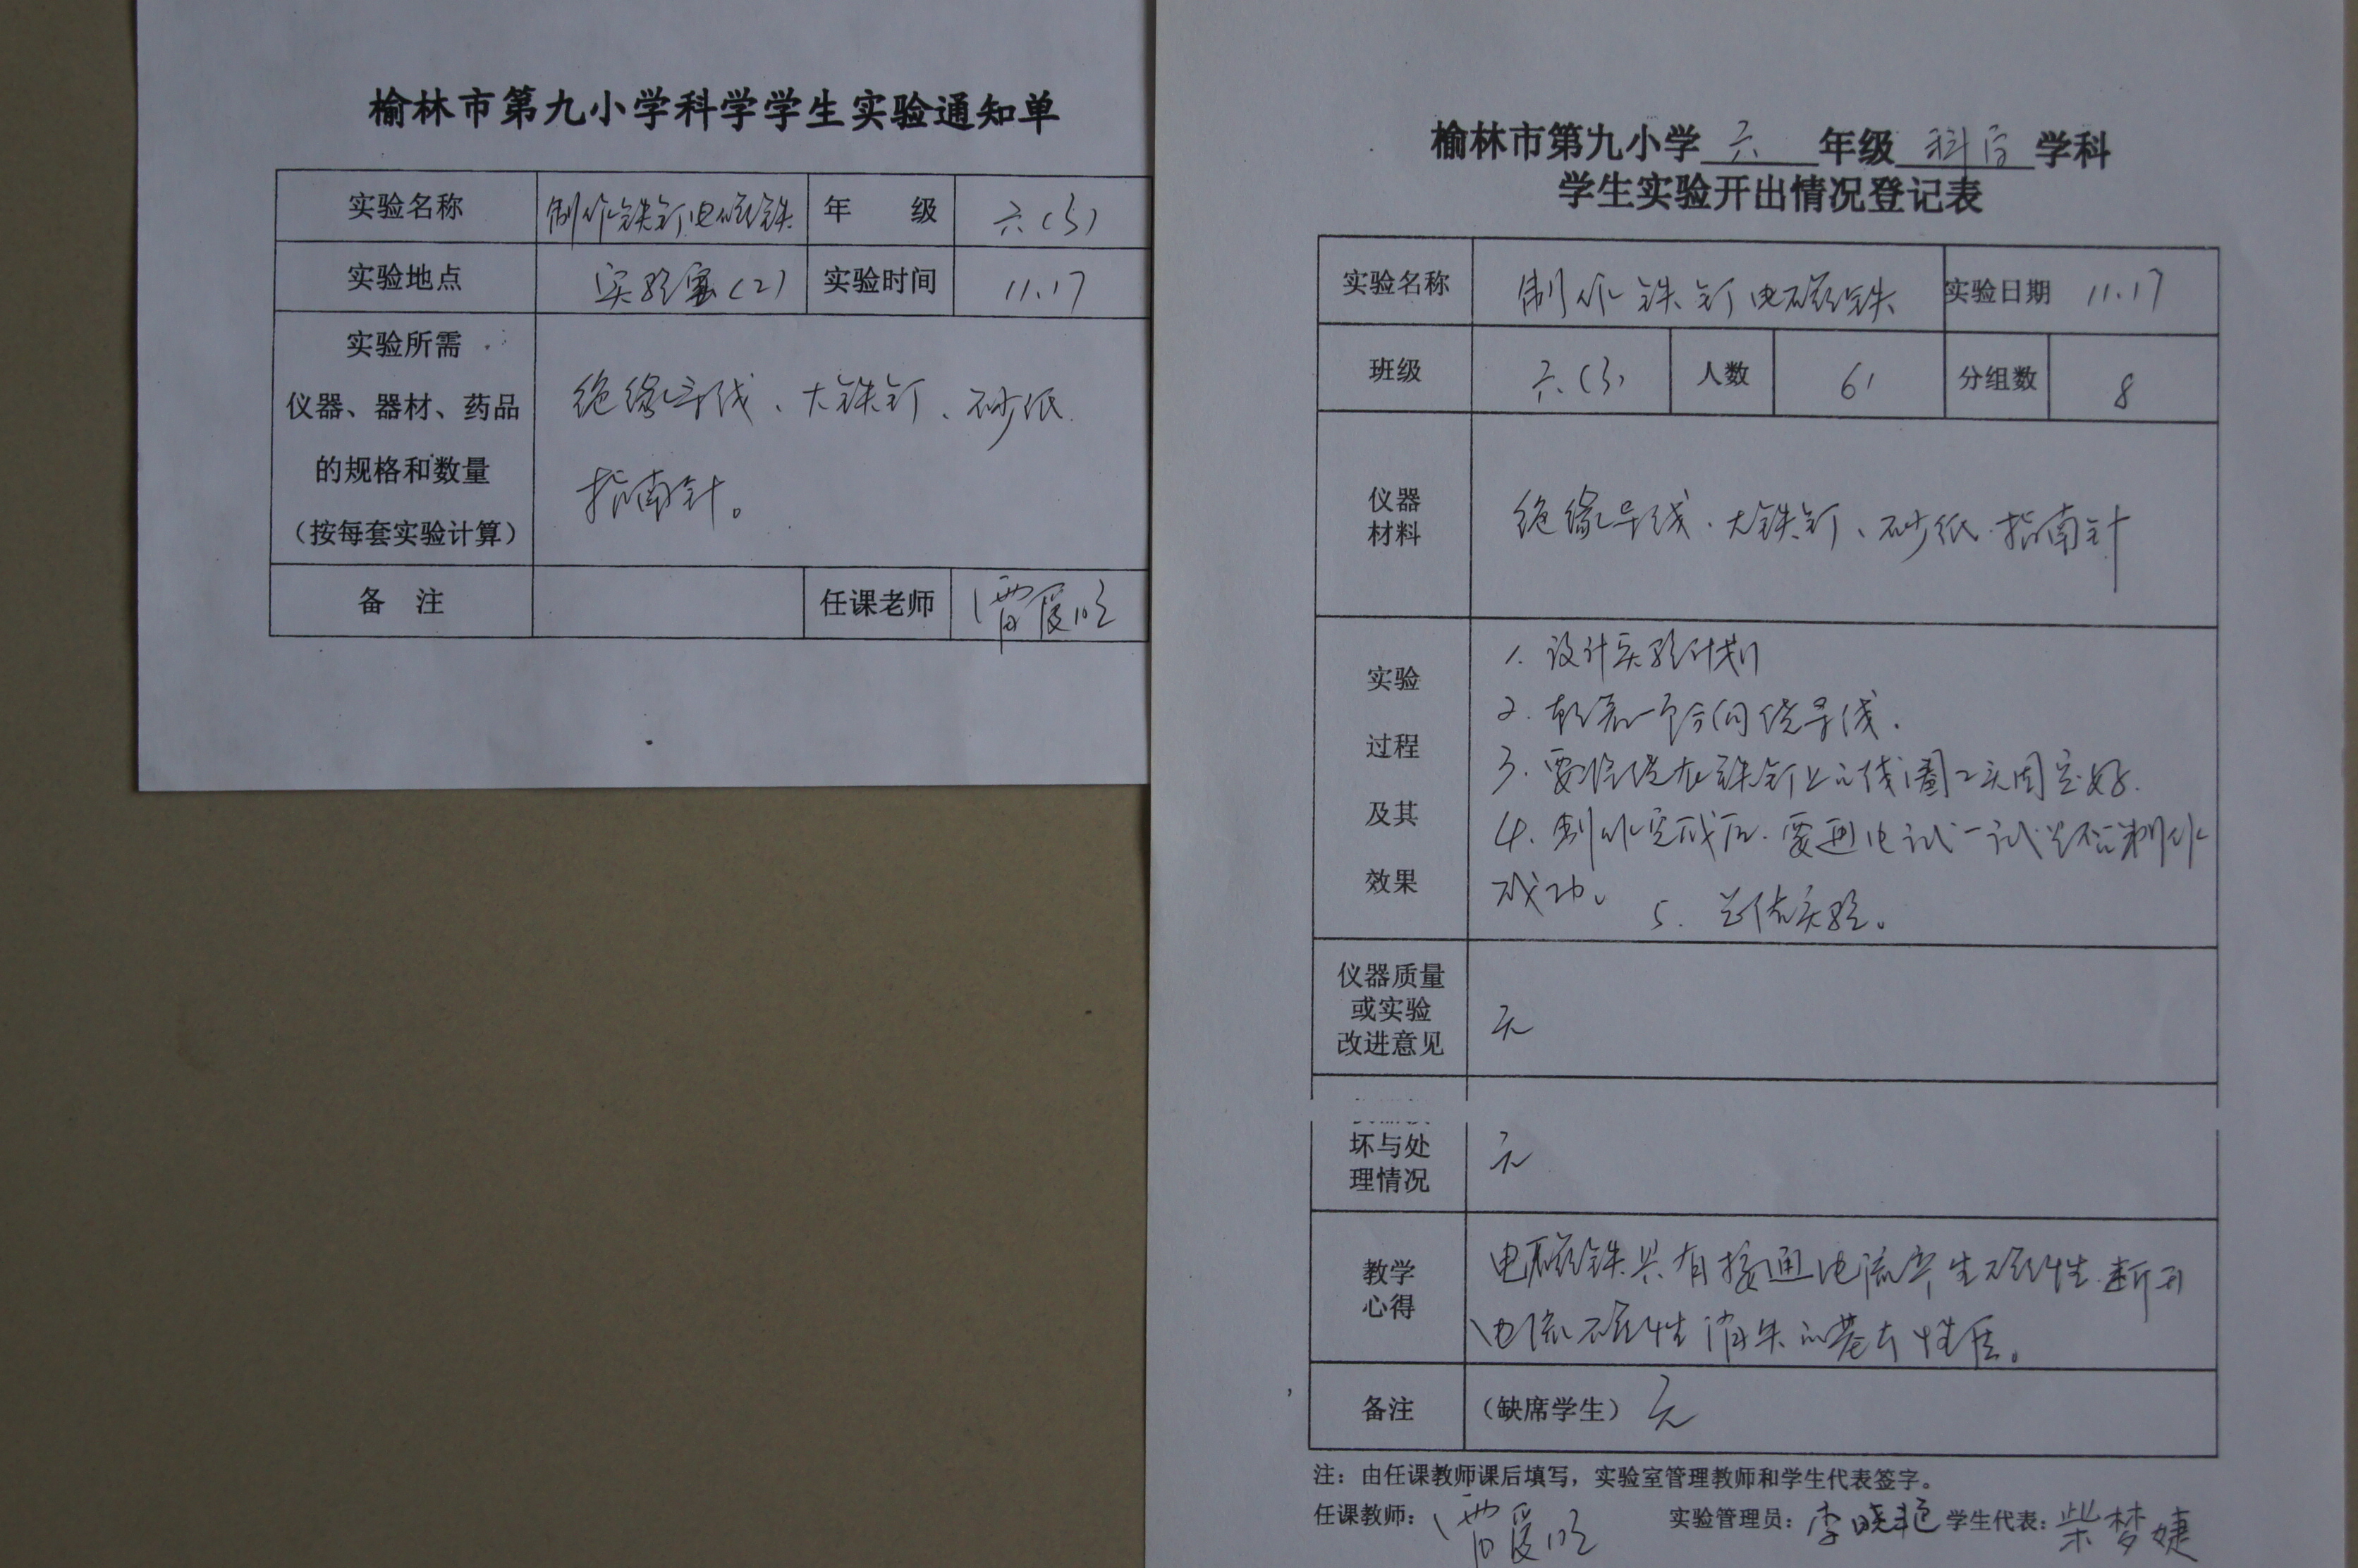 榆林市第九小学科学学生实验通知单
实验名称 制作铁钉电磁铁 年 级 六(3)
实验地点 实验室(2) 实验时间 11.17
实验所需
仪器、器材、药品
的规格和数量
(按每套实验计算)
绝缘导线、大铁钉、砂纸
指南针。
备 注 任课老师
榆林市第九小学 六 年级 科学 学科
学生实验开出情况登记表
实验名称 制作铁钉电磁铁 实验日期 11.17
班级 六(3) 人数 61 分组数 8
仪器
材料
绝缘导线、大铁钉、砂纸.指南针
实验
过程
及其
效果
1. 设计实验计划
2. 朝着一个方向绕导线.
3. 要将绕在铁钉上的线圈2头固定好.
4. 制作完成后.要通电试一试是否制作
成功。 5. 总结实验。
仪器质量
或实验
改进意见
无
坏与处
理情况
无
教学
心得
电磁铁具有接通电流产生磁性.断开
电流磁性消失的基本性质。
备注 (缺席学生) 无
注:由任课教师课后填写,实验室管理教师和学生代表签字。
任课教师: 实验管理员:李晓艳 学生代表:柴梦婕